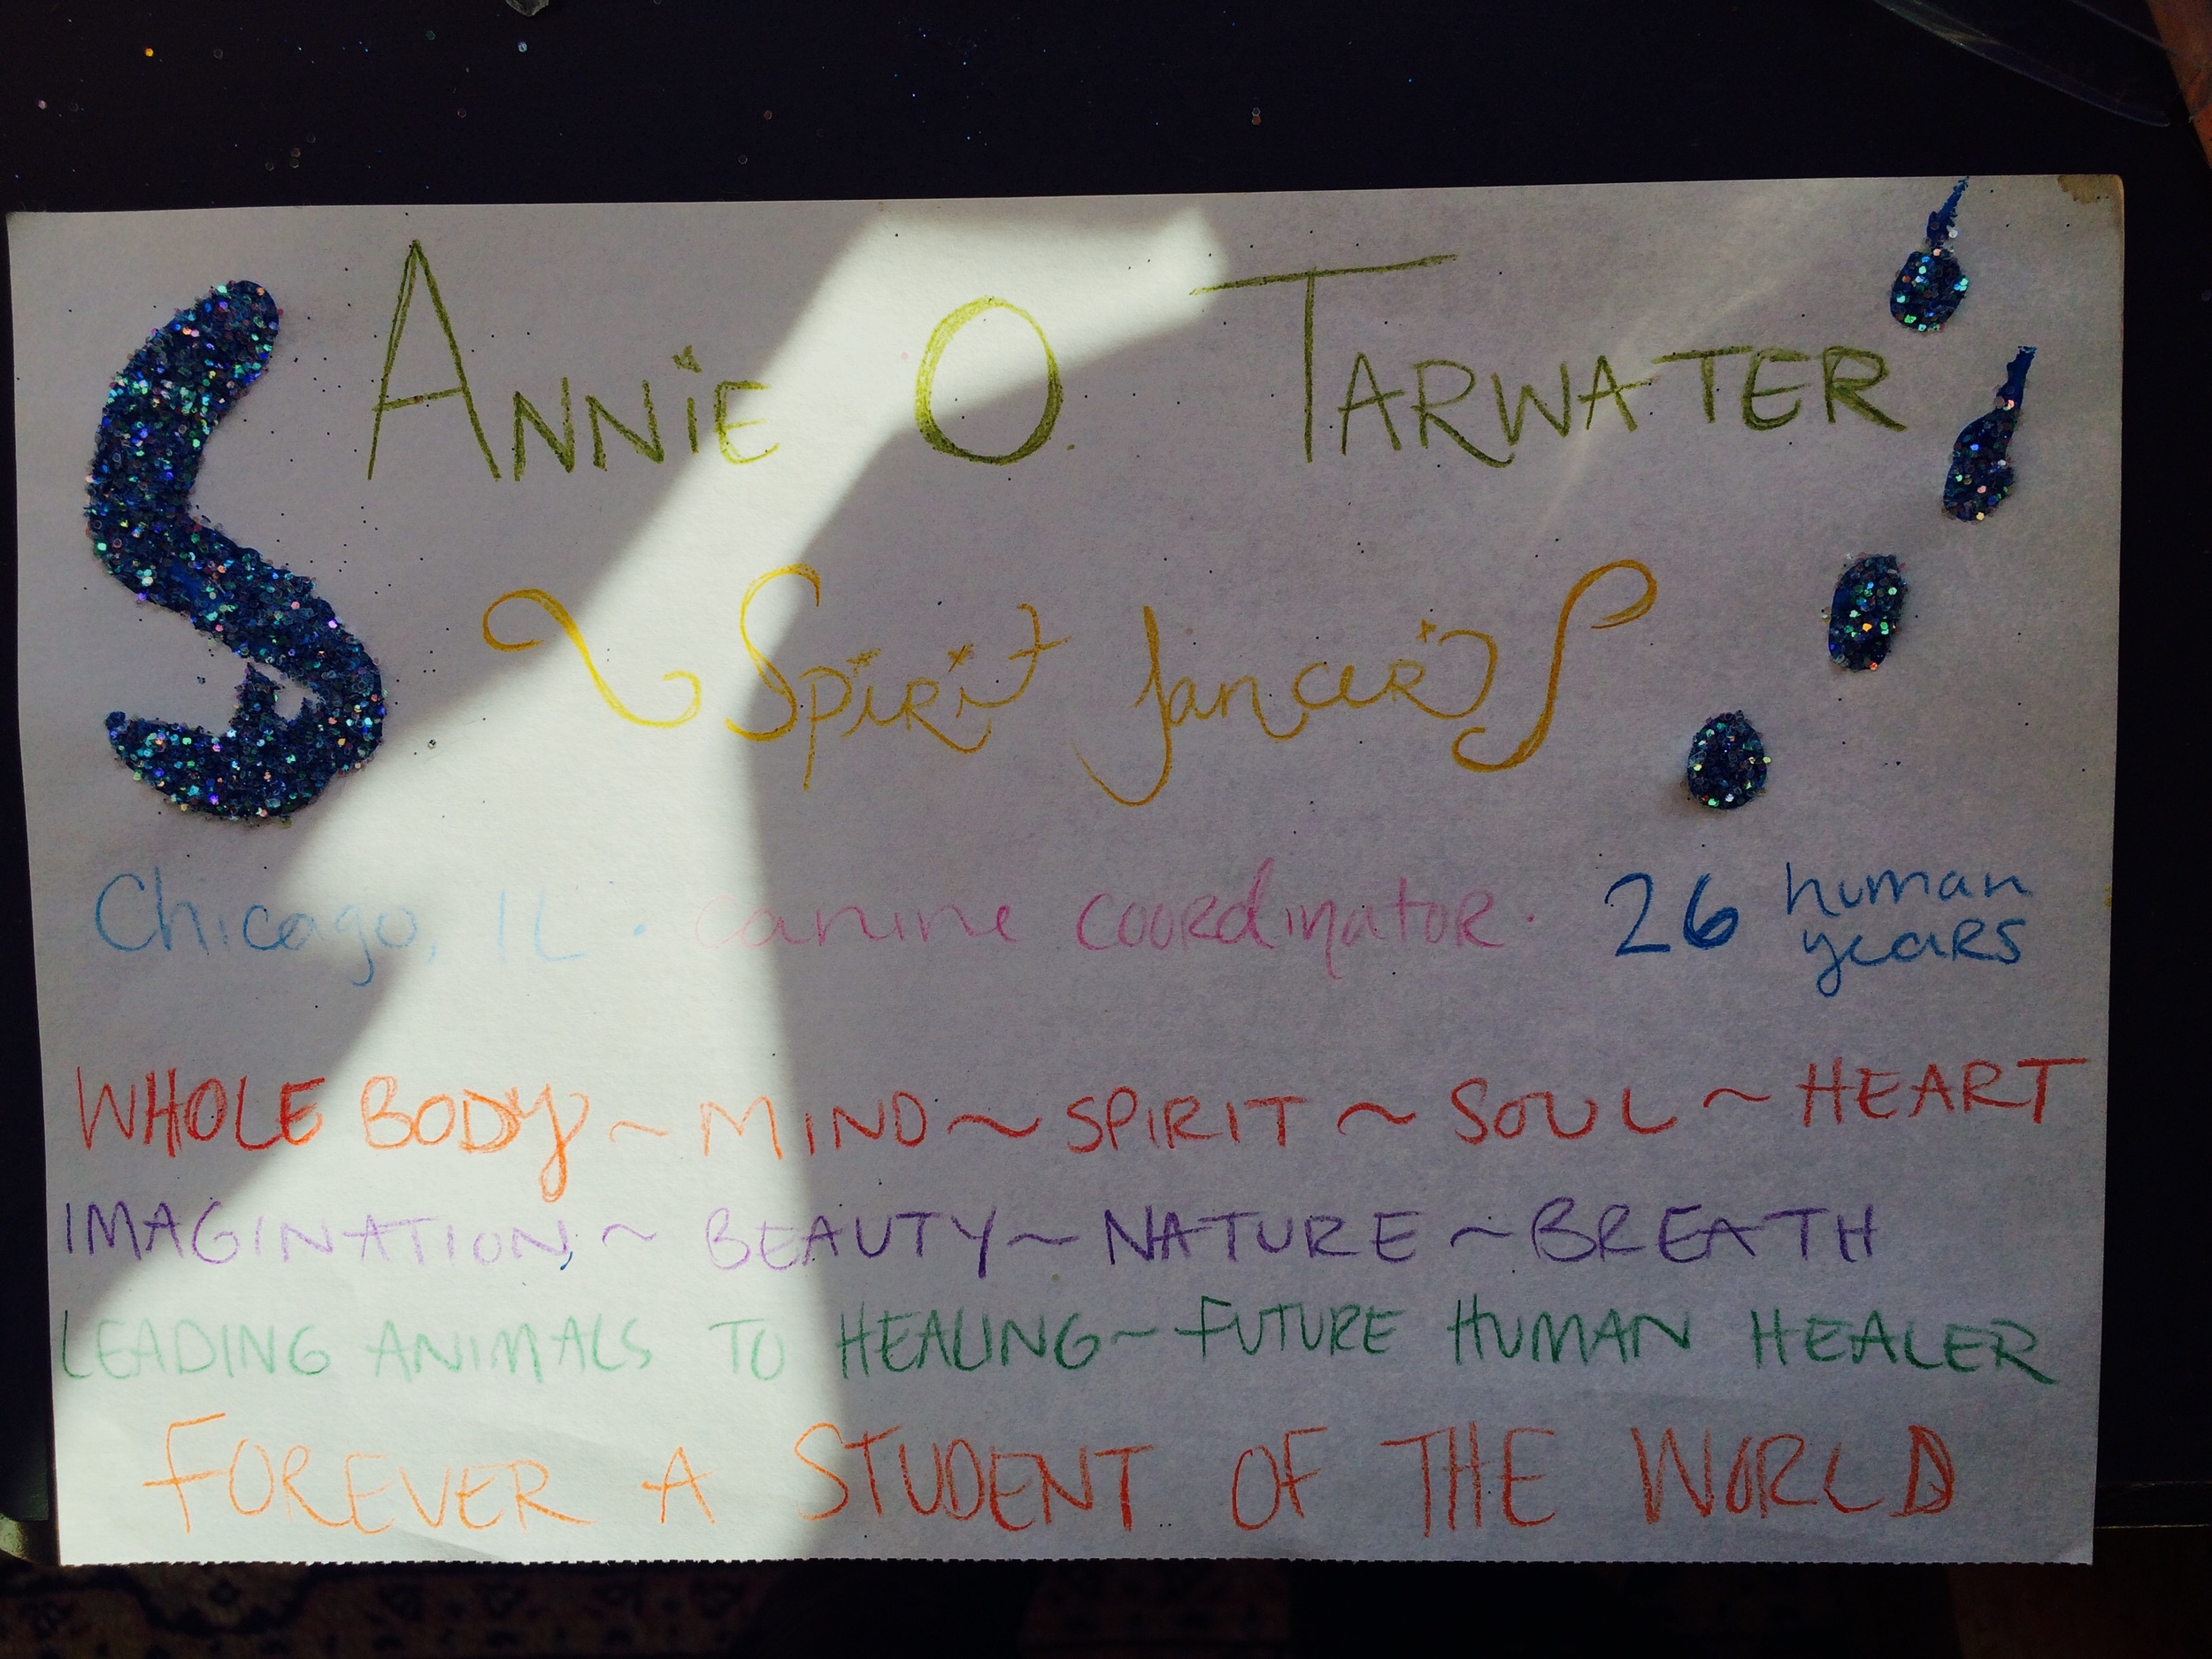 ANNiE O. TARWATER
~ SpiRit
Chicago, IL · canine cooRdinatoR · 26 human yeaRs
WHOLE BODY ~ MIND ~ SPIRIT ~ SOUL ~ HEART
IMAGINATION ~ BEAUTY ~ NATURE ~ BREATH
LEADING ANIMALS TO HEALING ~ FUTURE HUMAN HEALER
FOREVER A STUDENT OF THE WORLD